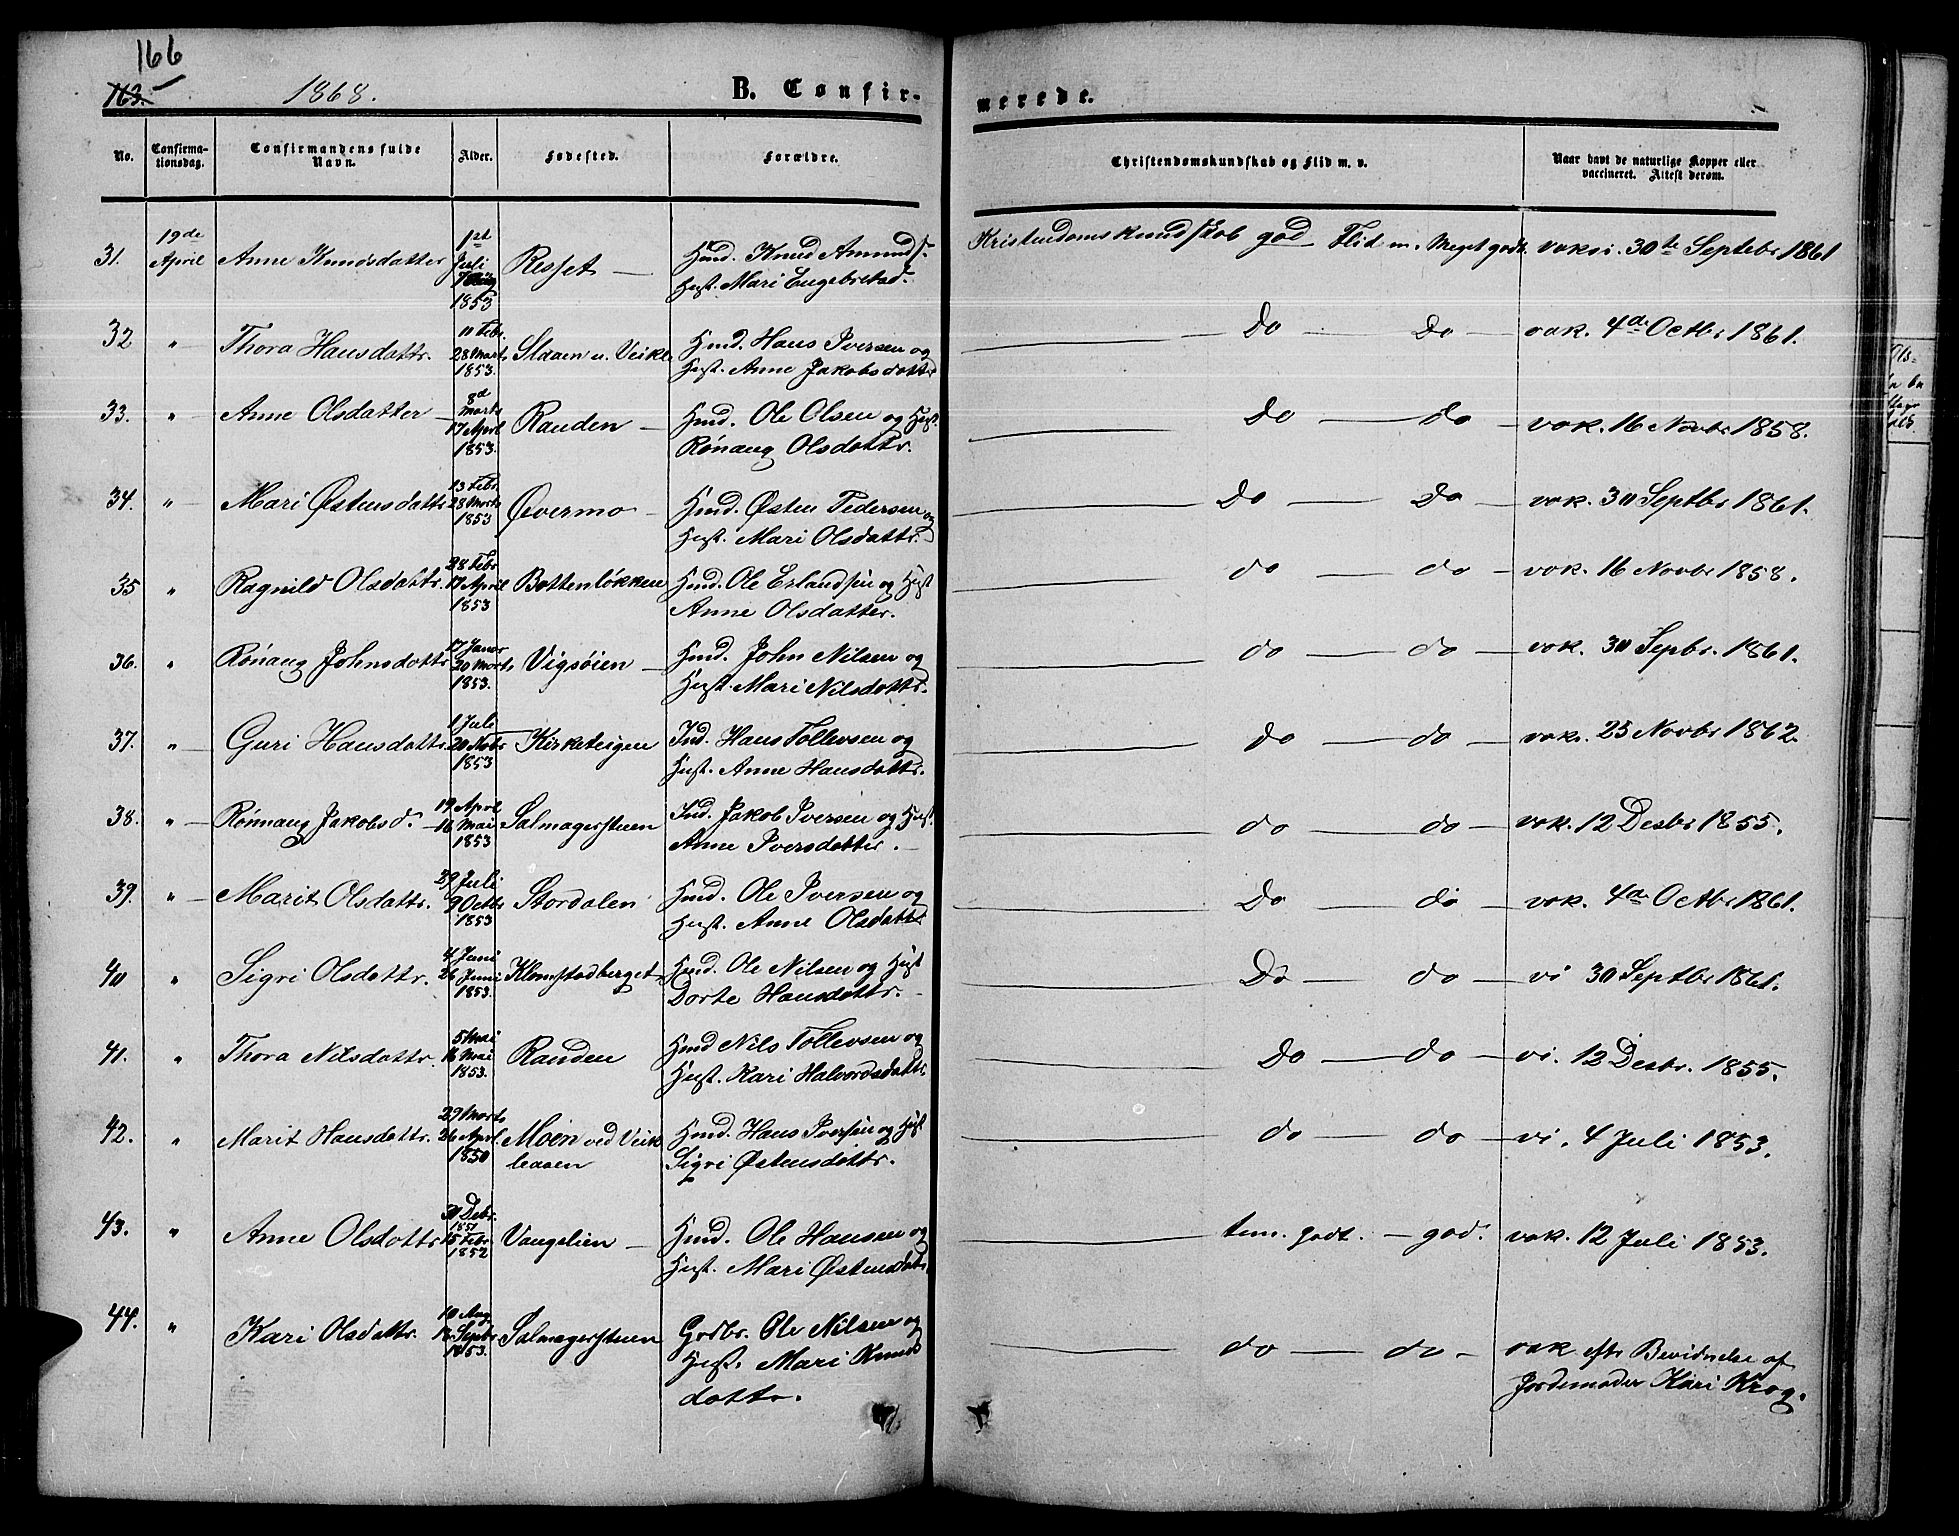 166
163.
1868.
B. Confir-
merede.
No.
Confirma-
tionsdag.
Confirmandens fulde
Navn.
Alder.
Fødested.
Forældre.
Christendomskundskab og Flid m. v.
Naar havt de naturlige Kopper eller
vaccineret. Attest derom.
31.
19de
April
Anne Knudsdatter
1st
Juli
1853
Resset
Hmd. Knud Amunds.
Hust. Mari Engebretsd.
Kristendomskundskab god Flid m. Meget godt.
vaksi. 30te Septebr 1861
32
"
Thora Hansdattr.
11 Febr.
28 Marts
1853.
Slaaen u. Veikle
Hmd. Hans Iversen og
Hust. Anne Jakobsdatter
Do Do
vak. 4de Octbr 1861.
33.
"
Anne Olsdatter
8d
Marts
17 April
1853.
Randen
Hmd. Ole Olsen og Hust.
Rønaug Olsdattr.
Do Do
vak. 16 Novbr 1858.
34.
"
Mari Østensdattr
13 Febr.
28 Marts
1853
Øvermo
Hmd. Østen Pedersen og
Hust. Mari Olsdattr.
Do Do
vak. 30 Septbr 1861.
35
"
Ragnild Olsdattr.
28 Febr
17 April
1853
Bottenløkken
Hmd. Ole Erlandsen og Hust
Anne Olsdatter.
do do
vak. 16 Novbr 1858.
36.
"
Rønaug Johnsdattr
17 Janr
20 Marts
1853.
Vigsøien
Hmd. John Nilsen og
Hust. Mari Nilsdattr.
do do
vak. 30 Sepbr. 1861.
37.
"
Guri Hansdattr.
1 Juli
20 Nobr
1853
Kirketeigen
Ind. Hans Tollevsen og
Hust. Anne Hansdattr.
do do
vak. 25 Novbr 1862.
38.
"
Rønnaug Jakobsd.
19 April
16 Mai
1853
Salmagerstuen
Ind. Jakob Iversen og Hust.
Anne Iversdatter.
do do
vak. 12 Desbr 1855.
39.
"
Marit Olsdattr.
29 Juli
9 Octbr
1853
Stordalen
Hmd. Ole Iversen og
Hust. Anne Olsdattr
Do do
vak. 4de Octbr 1861.
40
"
Sigri Olsdattr.
4 Juni
26 Juni
1853.
Klomstadberget
Hmd. Ole Nilsen og Hust
Dorte Hansdattr.
Do do
vi 30 Septbr 1861.
41.
"
Thora Nilsdattr.
5 Mai
16 Mai
1853.
Randen
Hmd Nils Tollevsen og
Hust. Kari Halvordsdattr.
Do do
vi. 12 Desbr. 1855.
42.
"
Marit Hansdattr.
29 Marts
26 April
1850
Moen ved Veik
leaaen
Hmd. Hans Iversen og Hust
Sigri Østensdattr.
do do
vi. 4 Juli 1853.
43.
"
Anne Olsdattr
Debr.
1851
15 Febr.
1852
Vangelien
Hmd. Ole Hansen og
Hust. Mari Østensdattr
tem. godt. god.
vak. 12 Juli 1853.
44.
"
Kari Olsdattr.
10 Aug
Septbr
1853.
Salmagerstuen
Grdbr. Ole Nilsen og
Hust. Mari Knuds
dattr.
do do
vak eftr Bevidnelse af
Jordemoder Kari Krog.